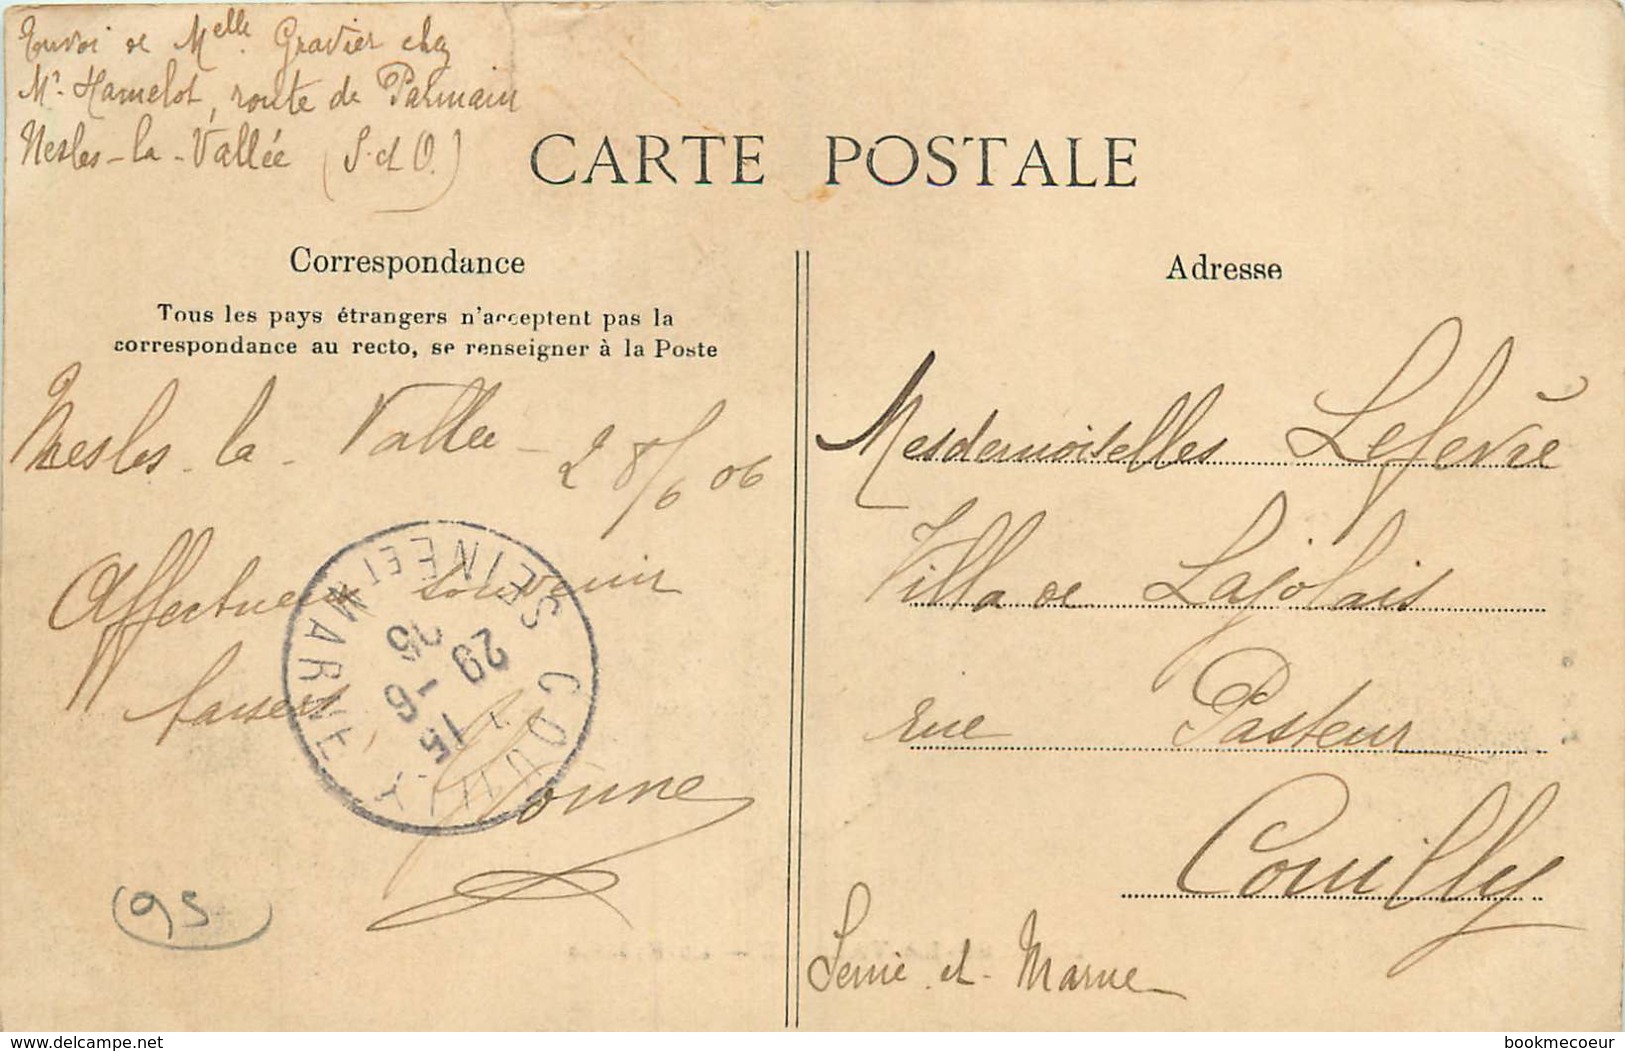 Envoi de Melle Gravier chez
Mr Hamelot, route de Parmain
Nesles-la-Vallée (S.et O.)
CARTE POSTALE
Correspondance
Tous les pays étrangers n'acceptent pas la
correspondance au recto, se renseigner à la Poste
Nesles-la-Vallée - 28/6 06
Affectueux souvenir
baisers
Yvonne
COUILLY SEINE ET MARNE
15
29 - 6
06
95
Adresse
Mesdemoiselles Lefèvre
Villa de Lajolais
rue Pasteur
Couilly
Seine et Marne
delcampe.net
bookmecoeur